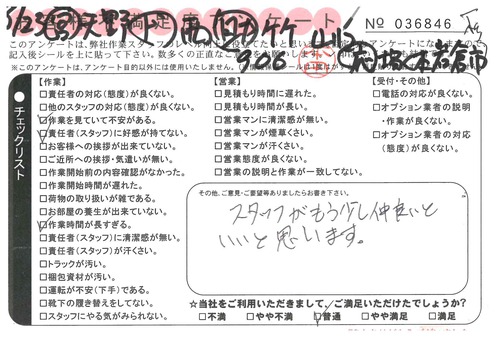 アンケート
No 036846
このアンケートは、弊社作業スタッフのレベル向上
記入後シールを上に貼って下さい。
※このアンケートは、アンケート目的以外には使用いたしません。
チェックリスト
【作業】
□責任者の対応(態度)が良くない。
□他のスタッフの対応(態度)が良くない。
□作業を見ていて不安がある。
□責任者(スタッフ)に好感が持てない。
□お客様への挨拶が出来ていない。
□ご近所への挨拶・気遣いが無い。
□作業開始前の内容確認がなかった。
□作業開始時間が遅れた。
□荷物の取り扱いが雑である。
□お部屋の養生が出来ていない。
□作業時間が長すぎる。
□責任者(スタッフ)に清潔感が無い。
□責任者(スタッフ)が汗くさい。
□トラックが汚い。
□梱包資材が汚い。
□運転が不安(下手)である。
□靴下の履き替えをしてない。
□スタッフにやる気がみられない。
【営業】
□見積もり時間に遅れた。
□見積もり時間が長い。
□営業マンに清潔感が無い。
□営業マンが煙草くさい。
□営業マンが汗くさい。
□営業態度が良くない。
□営業の説明と作業が一致してない。
【受付・その他】
□電話の対応が良くない。
□オプション業者の説明
・作業が良くない。
□オプション業者の対応
(態度)が良くない。
その他、ご意見・ご要望等ありましたらお書き下さい。
スタッフがもう少し仲良いと
いいと思います。
☆当社をご利用いただきまして、ご満足いただけたでしょうか?
□不満 □やや不満 □普通 □やや満足 □満足